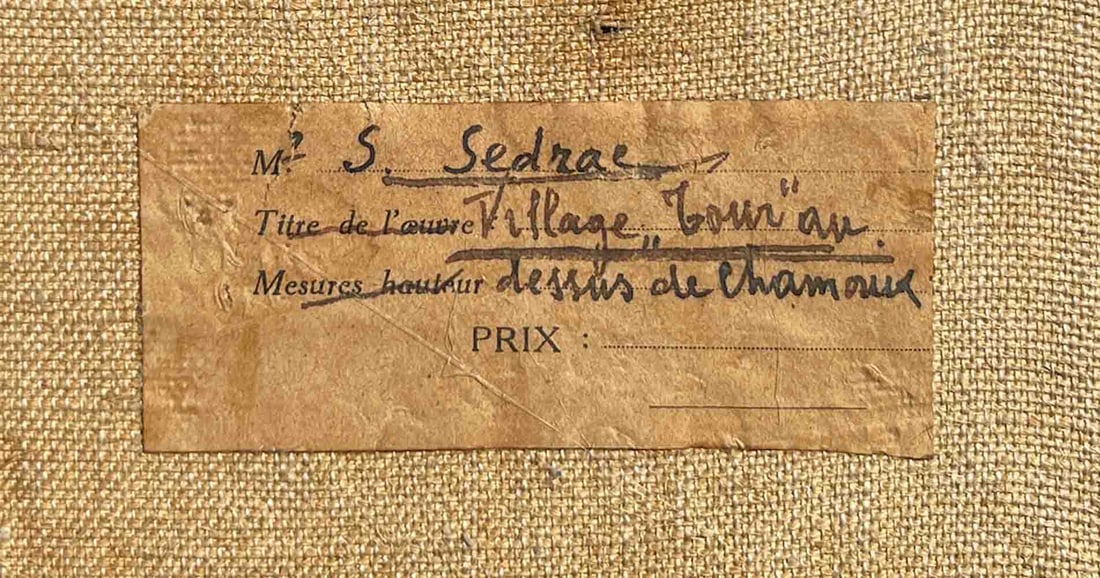 Mr S. Sedrac
Titre de l'œuvre Village „Tour" au
Mesures hauteur dessus de Chamonix
PRIX :